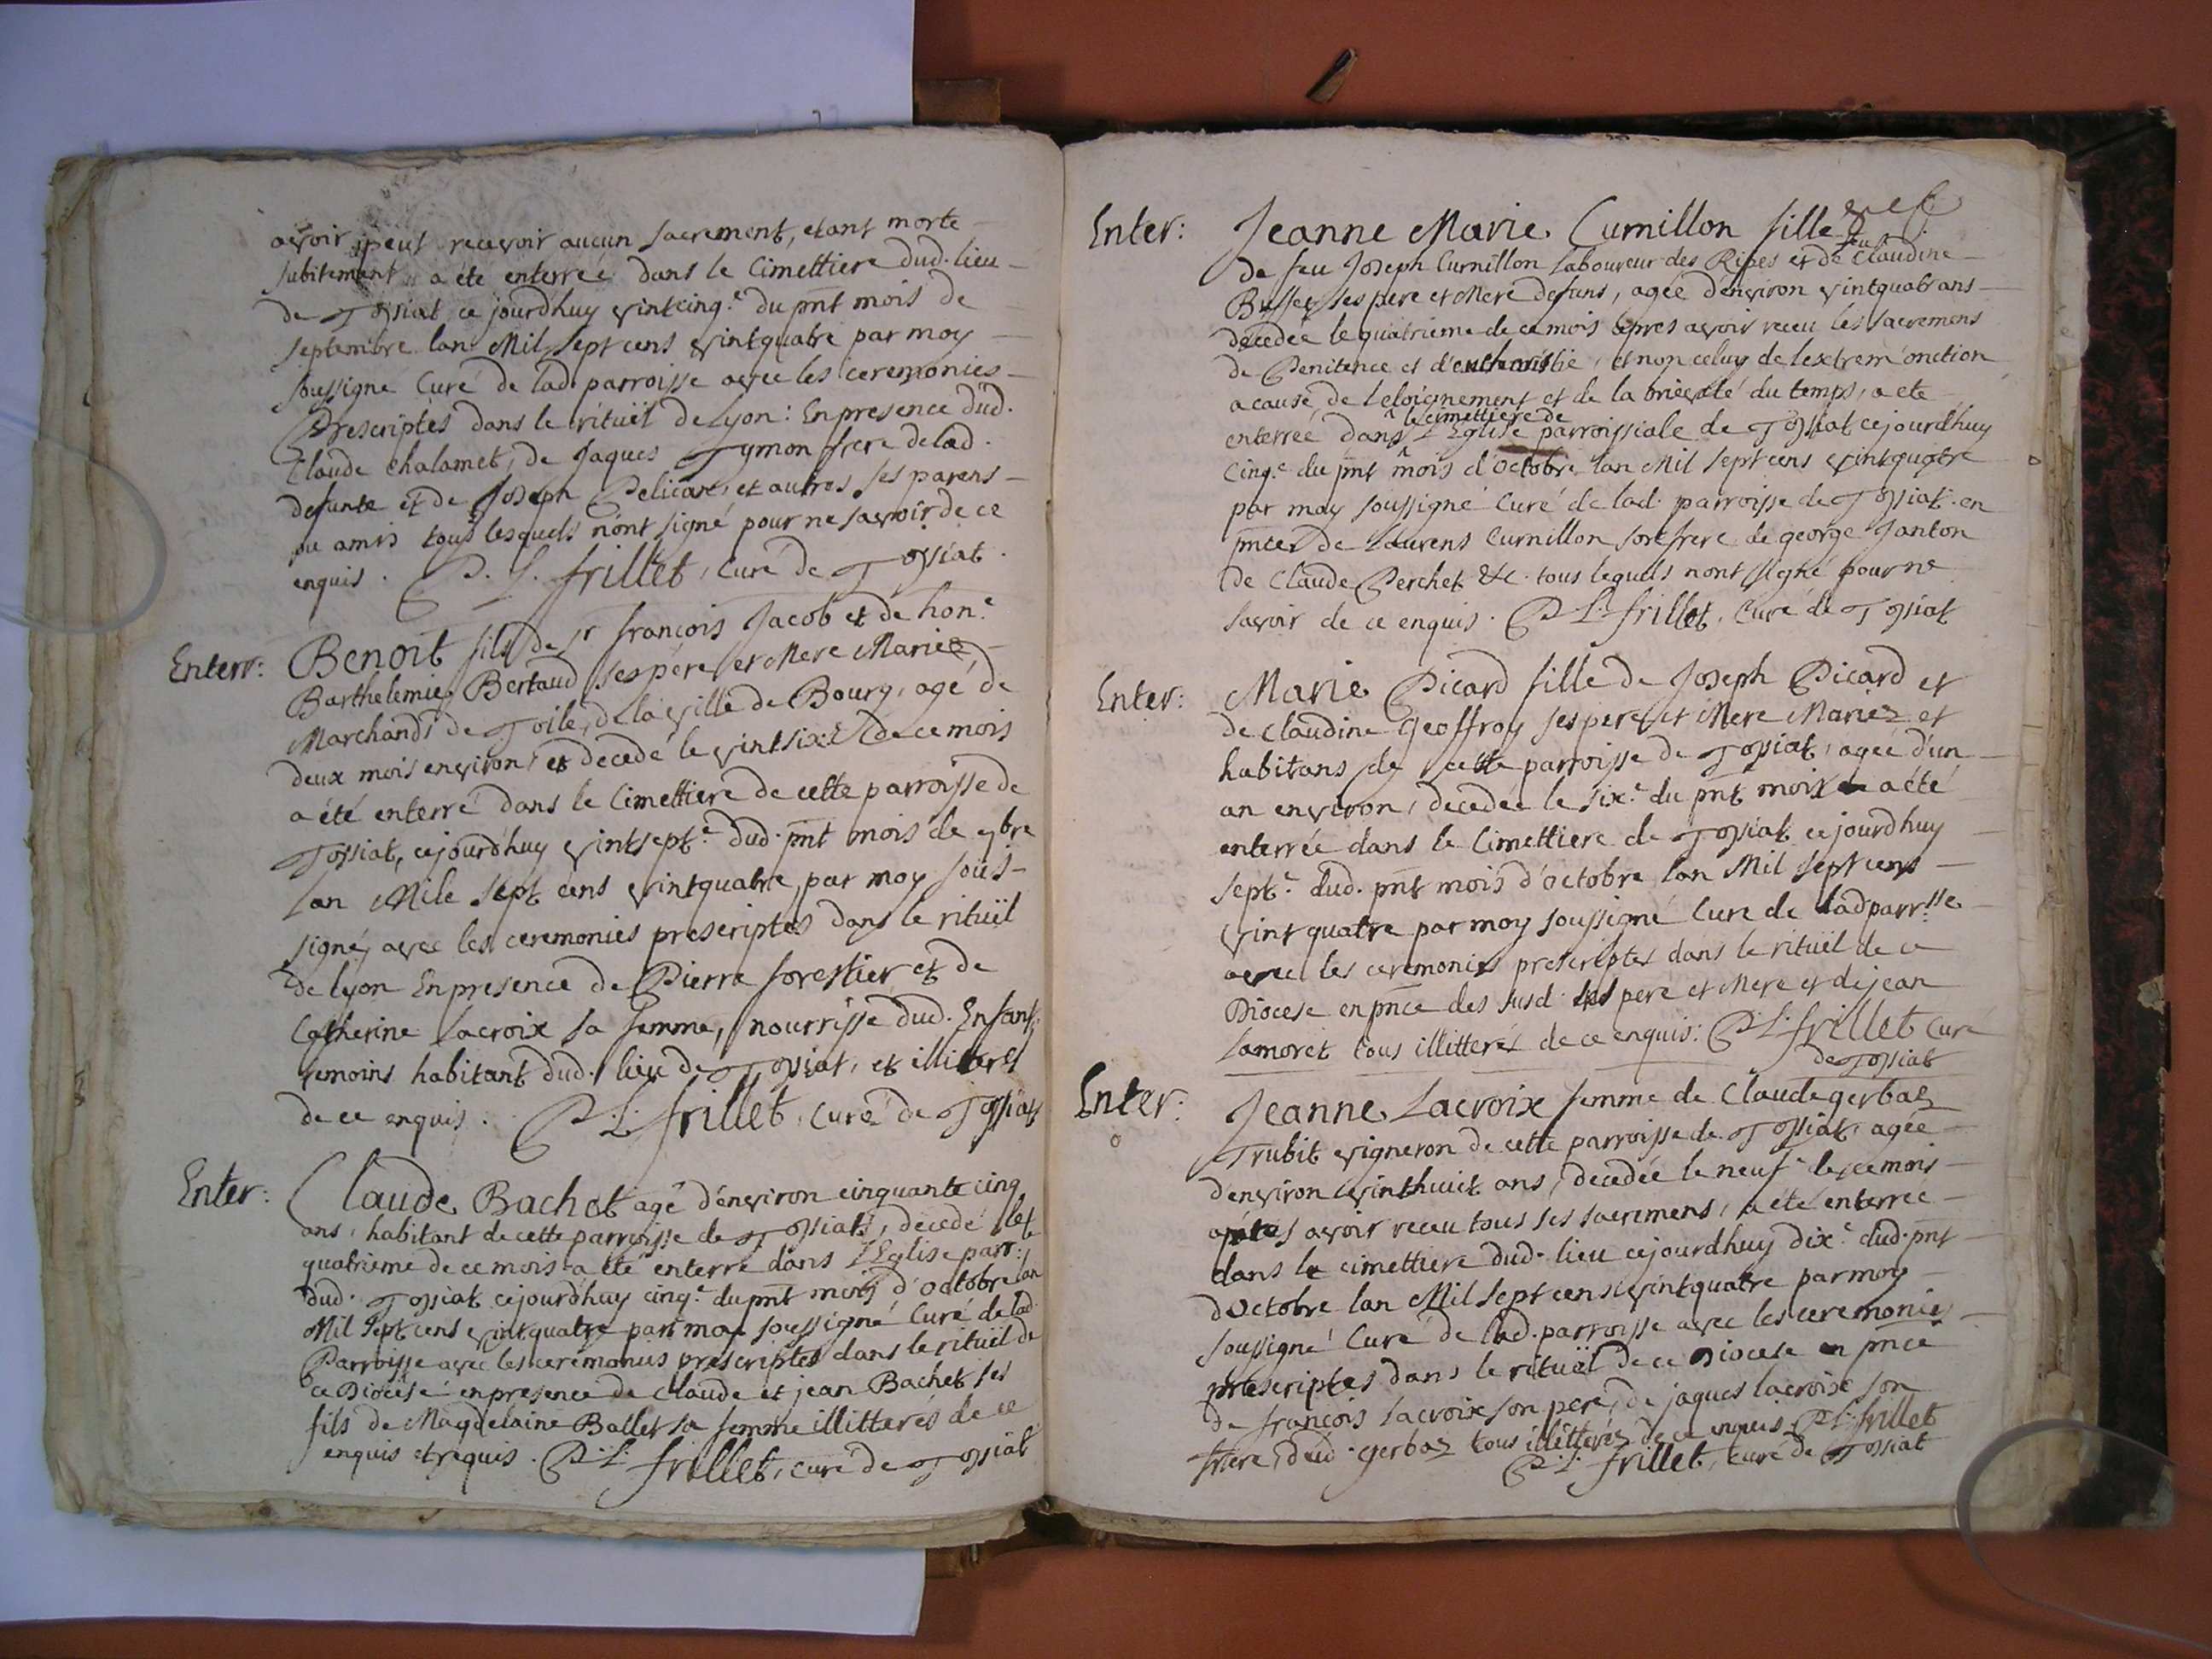 avoir peut recevoir aucun sacrement, etant morte
subitement a été enterreé dans le Cimettiere dud. lieu
de Tossiat ce jourdhuy vintcinq.e du pnt mois de
septembre lan Mil sept cens vintquatre par moy
soussigné Curé de lad. parroisse avec les ceremonies
Prescriptes dans le rituël de Lyon: En presence dud.
Claude chalamet, de Jaques Tymon frere de lad.
defunte et de Joseph Pelican, et autres ses parens
ou amis tous lesquels n'ont signé pour ne savoir de ce
enquis. P. L. frillet, Curé de Tossiat.
Enterr: Benoit fils de Sr françois Jacob et de hon.e
Barthelemie Bertaud ses pere et Mere Mariez,
Marchands de Toile, de la ville de Bourg, agé de
deux mois environ, et decedé le vintsix.e de ce mois
a été enterré dans le Cimettiere de cette parroisse de
Tossiat, cejourd'huy vintsept.e dud. pnt mois de 7bre
lan Mile sept cens vintquatre, par moy sous-
signé, avec les ceremonies prescriptes dans le rituël
de Lyon En presence de Pierre forestier et de
Catherine Lacroix sa femme, nourrisse dud. Enfant,
temoins habitant dud. lieu de Tossiat, et illiterés
de ce enquis. P. L. frillet, Curé de Tossiat
Enter: Claude Bachet agé d'environ cinquante cinq
ans, habitant de cette parroisse de Tossiat, decedé le
quatrieme de ce mois a été enterré dans l'Eglise parr:
dud. Tossiat cejourd'huy cinq.e du pnt mois d'octobre lan
Mil sept cens vintquatre par moy soussigné Curé de lad.
Parroisse avec les ceremonies prescriptes dans le rituël de
ce Diocese en presence de Claude et jean Bachet ses
fils de Magdelaine Ballet sa femme illitterés de ce
enquis et requis. P. L. frillet, curé de Tossiat
Enter: Jeanne Marie Curnillon fille
feu
de feu Joseph Curnillon Laboureur des Ripes et de Claudine
ses pere et Mere defuns, ageé d'environ vintquatr ans
decedée le quatrieme de ce mois apres avoir receu les sacremens
de Penitence et d'eucharistie, et non celuy de lextrem' onction
a cause de leloignement et de la brieveté du temps, a ete
le cimettiere de
enterreé dans l'Eglise parroissiale de Tossiat cejourdhuy
cinq.e du pnt mois d'octobre lan Mil sept cens vintquatre
par moy soussigné Curé de lad. parroisse de Tossiat. en
pnce de Laurens Curnillon son frere de george Janton
de Claude Perchet &c. tous lequels nont signé pour ne
savoir de ce enquis. P. L. frillet, Curé de Tossiat
Enter: Marie Picard fille de Joseph Picard et
de Claudine Geoffroy ses pere et Mere Mariez et
habitans de cette parroisse de Tossiat, ageé d'un
an environ, decedeé le six.e du pnt mois a été
enterrée dans le Cimettiere de Tossiat cejourdhuy
sept.e dud. pnt mois d'octobre lan Mil sept cens
vint quatre par moy soussigné Curé de lad parr.sse
avec les ceremonies prescriptes dans le rituël de ce
Diocese en pnce des susd. pere et Mere et de jean
Lamoret tous illitterez de ce enquis: P. L. frillet Curé
de Tossiat
Enter: Jeanne Lacroix femme de Claude gerbaz
Trubit vigneron de cette parroisse de Tossiat, ageé
denviron vinthuit ans, decedée le neuf.e de ce mois
aprés avoir receu tous ses sacremens, a eté enterreé
dans le cimettiere dud. lieu cejourdhuy dix.e dud. pnt
dOctobre lan Mil sept cens vintquatre par moy
soussigné Curé de lad. parroisse avec les ceremonies
prescriptes dans le rituël de ce Diocese en pnce
de françois Lacroix son pere, de jaques lacroix son
frere, dud. gerbaz tous illitterez de ce enquis. P. L. frillet
P. L. frillet, Curé de Tossiat